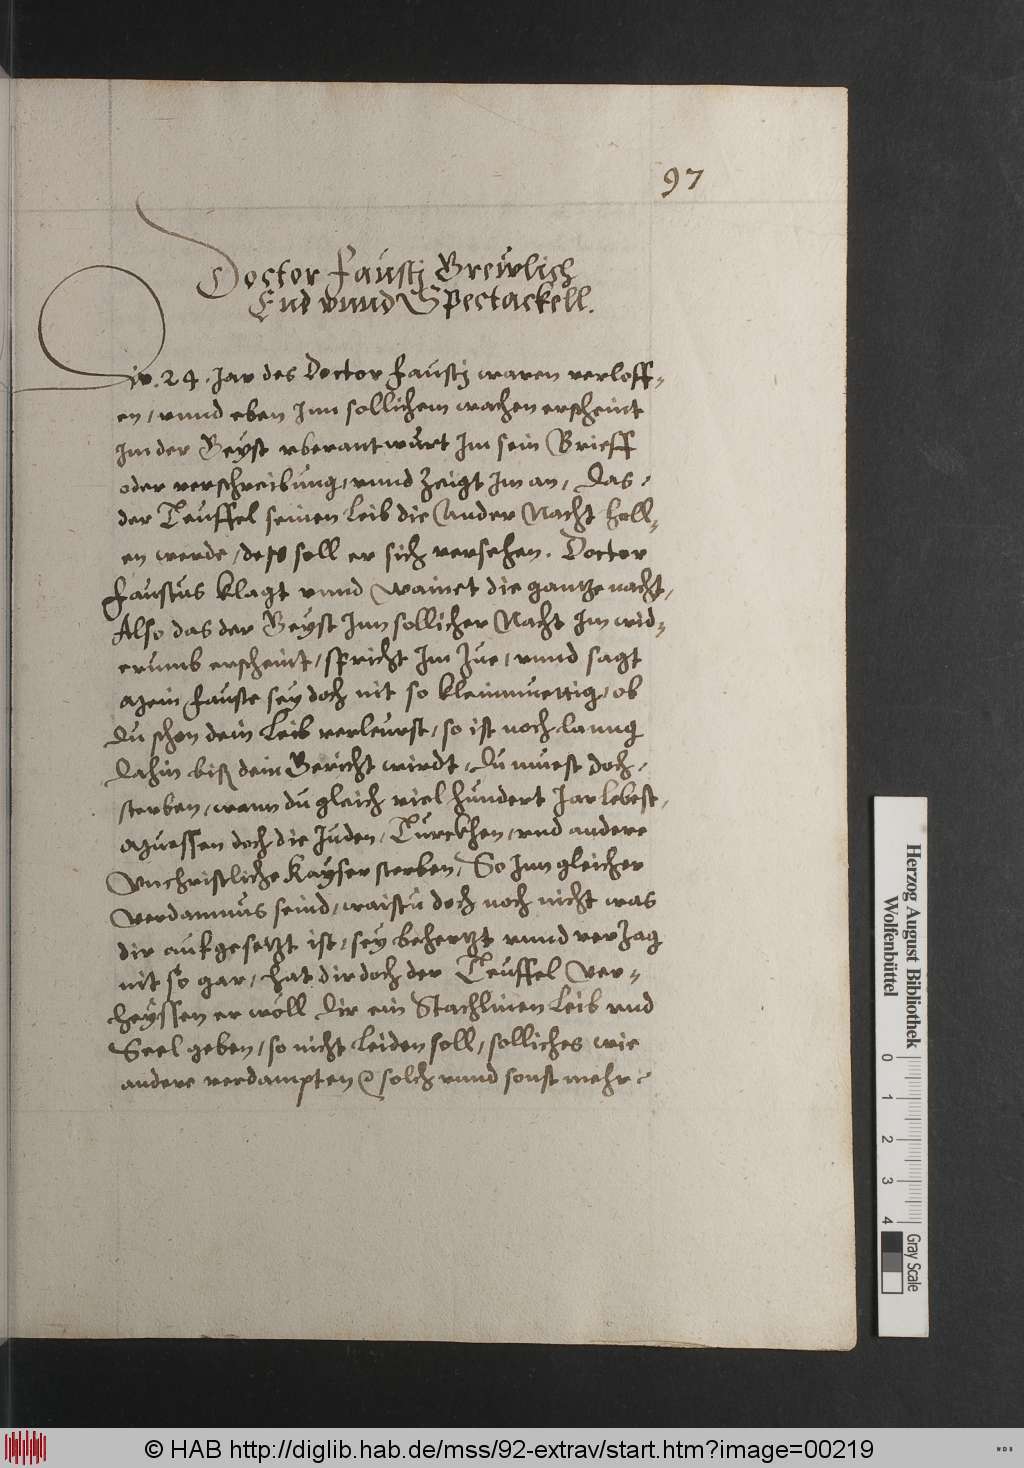 97
Doctor Faustj Greuͤlich
End vnnd Spectackell.
Die. 24. Jar des Doctor Faustj waren verloff-
en, vnnd eben Inn sollichem wachen erscheint
Im der Geyst vberantwurt Im sein Brieff
oder verschreibung, vnnd Zeigt Im an, Das,
der Teuffel seinen Leib die Ander Nacht holl-
en werde, dess soll er sich versehen. Doctor
Faustus klagt vnnd wainet die gantze nacht,
Also das der Geyst Inn sollicher Nacht Im wid-
erumb erscheint, spricht Im Zue, vnnd sagt
Mein Fauste sey doch nit so kleinmuettig, ob
Du schon dein Leib verleurst, so ist noch lanng
Dahin biß dein Gericht wirdt, Du muest doch,
sterben, wann du gleich viel hundert Jar lebest,
Muessen doch die Juden, Turckhen, vnd andere
Vnchristliche Kayser sterben, So Inn gleicher
Verdamnus seind, waistu doch noch nicht was
dir aufgesetzt ist, sey behertzt vnnd verzag
nit so gar, hat dir doch der Teuffel Ver-
heyssen er woll Dir ein Stachlinen Leib vnd
Seel geben, so nicht Leiden soll, solliches wie
andere verdampten solch vnnd sonst mehr
Herzog August Bibliothek
Wolfenbüttel
0 1 2 3 4
Gray Scale
© HAB http://diglib.hab.de/mss/92-extrav/start.htm?image=00219
WDB